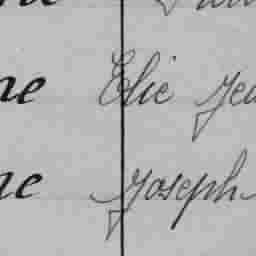 ne Elie Jea
ne Joseph